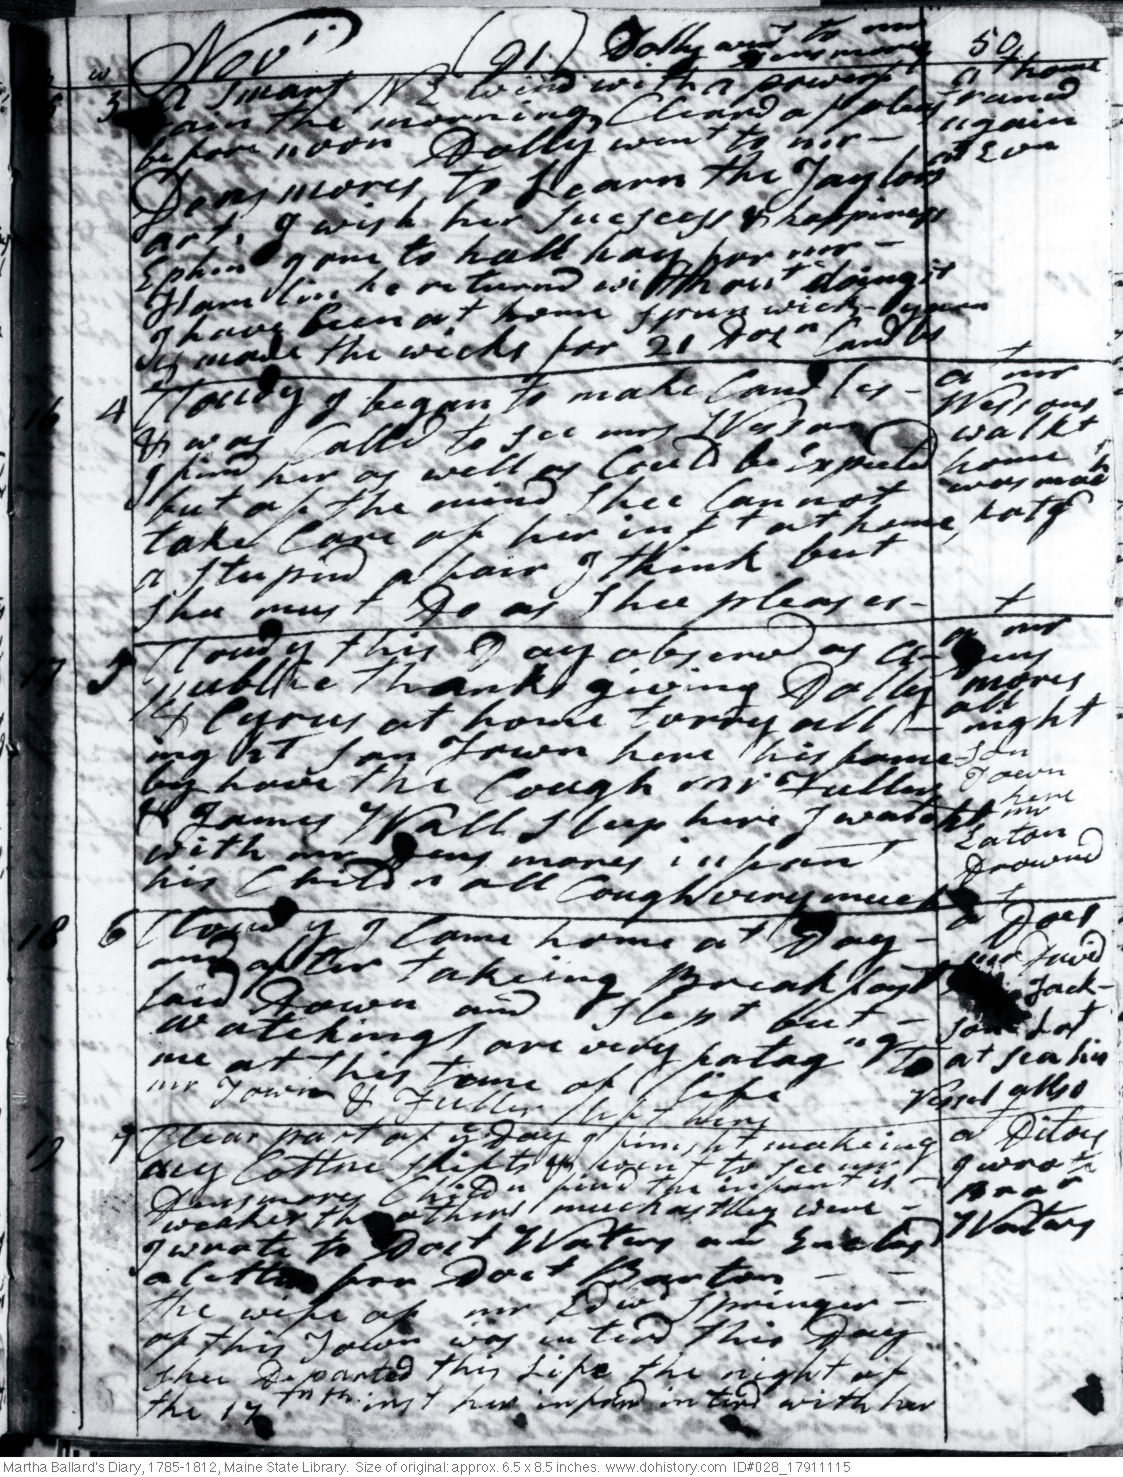 Novr (91) Dolly went to mr Densmores 50
15 3 a Smart N E wind with a powerf a t home
rain the morning, Cleard of pleas raind
before noon Dolly went to mr - again
Densmores to Learn the Taylors at Evn
art. I wish her Suescess & happiness
Ephm gone to hall hay for mr -
Hamlin he returnd without doing it
I have been at home Spun wick yarn
& made the wicks for 21 Dozn Candls
16 4 Cloudy I began to make Candles - at mr
& was Calld to See mrs Wesson Wessons
I find her as well as Could be Expected walkt
but of the mind Shee Cannot home
take Care of her inft at home, was much fatg
a Stupind afair I think but
Shee must Do as Shee pleases -
17 5 Cloudy this Day observd as a - at mr
publick thanks giving Dolly Dens
& Cyrus at home torry all - mores
ing at Son Town here his fame- all
by have the Cough mr Fuller night
& James Wall Sleep here I watcht Son Town here
with mr Dens mores infant mr Eaton
his Childn all Cough very much Drowned
18 6 Cloudy I Came home at Day - a Does
and after takeing Breakfast mr David
laid Down and Slept but - Jack-
watchings are very fatag"g to son Lost
me at this tame of life at Sea his
mr Town & Fuller Sleep here Vessel allso
19 7 Clear part of ye Day I finisht makeing a Ditoy
my Cotten Shifts & went to See mr I wrote
Densmores Childn find the infant is - Bror
weaker the others much as they were - Waters
I wrote to Doct Waters and Enclosd
a letter for Doct Barton - -
the wife of mr Edwd Springer -
of this Town was interd this Day
Shee Departed this Life the night of
the 17th inst her infant interd with her
Martha Ballard's Diary, 1785-1812, Maine State Library. Size of original: approx. 6.5 x 8.5 inches. www.dohistory.com ID#028_17911115